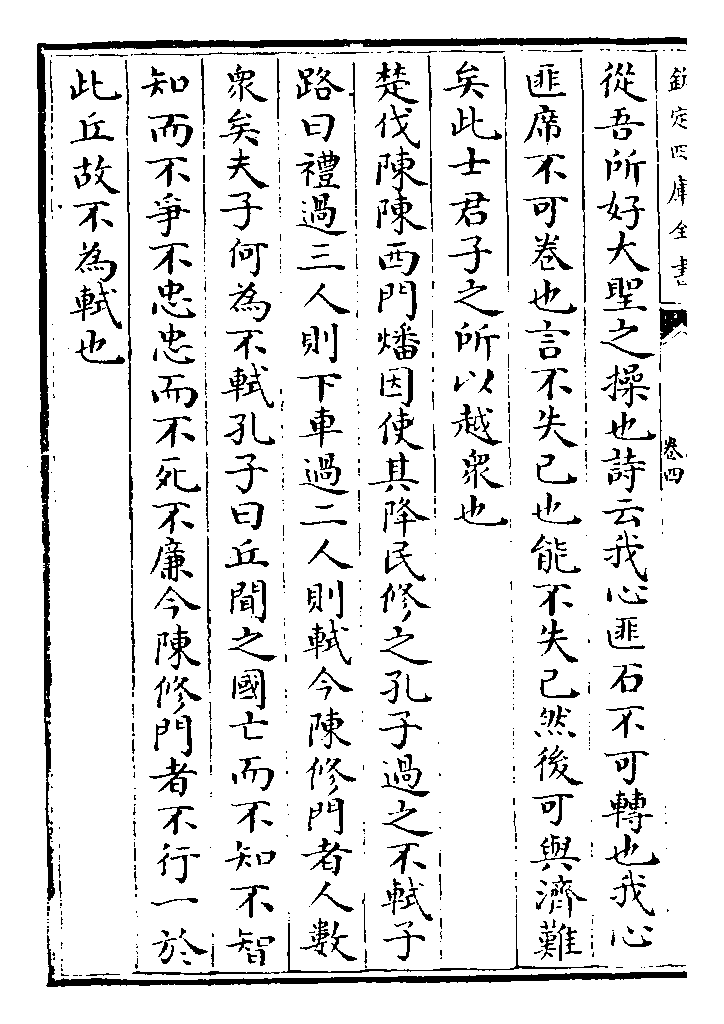 欽定四庫全書
卷四
從吾所好大聖之操也詩云我心匪石不可轉也我心
匪席不可卷也言不失已也能不失已然後可與濟難
矣此士君子之所以越衆也
楚伐陳陳西門燔因使其降民修之孔子過之不軾子
路曰禮過三人則下車過二人則軾今陳修門者人數
衆矣夫子何為不軾孔子曰丘聞之國亡而不知不智
知而不爭不忠忠而不死不廉今陳修門者不行一於
此丘故不為軾也